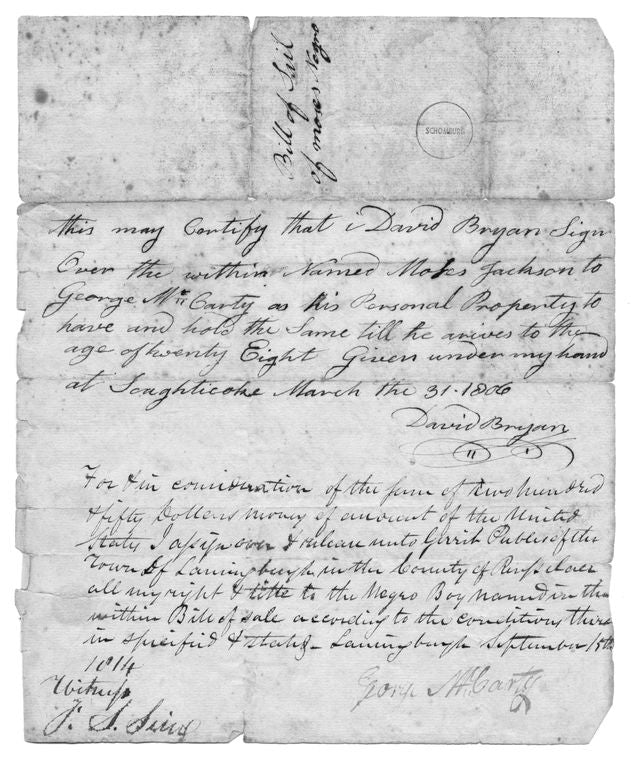 Bill of Sail
of moses Negro
SCHOMBURG
this may Certify that i David Bryan Sign
Over the within Named Moses Jackson to
George Mc Carty as his Personal Property to
have and hold the Same till he arives to the
age of twenty Eight Given under my hand
at Scaghticoke March the 31 1806
David Bryan
For & in consideration of the sum of two hundred
& fifty Dollars money of account of the United
States I assign over & release unto Gerrit of the
Town of Lansingburgh in the County of Rensselaer
all my right & title to the Negro Boy named in the
within Bill of sale according to the conditions there
in specified & stated Lansingburgh September 15th
1814
Witness
George Mc Carty
J. S.